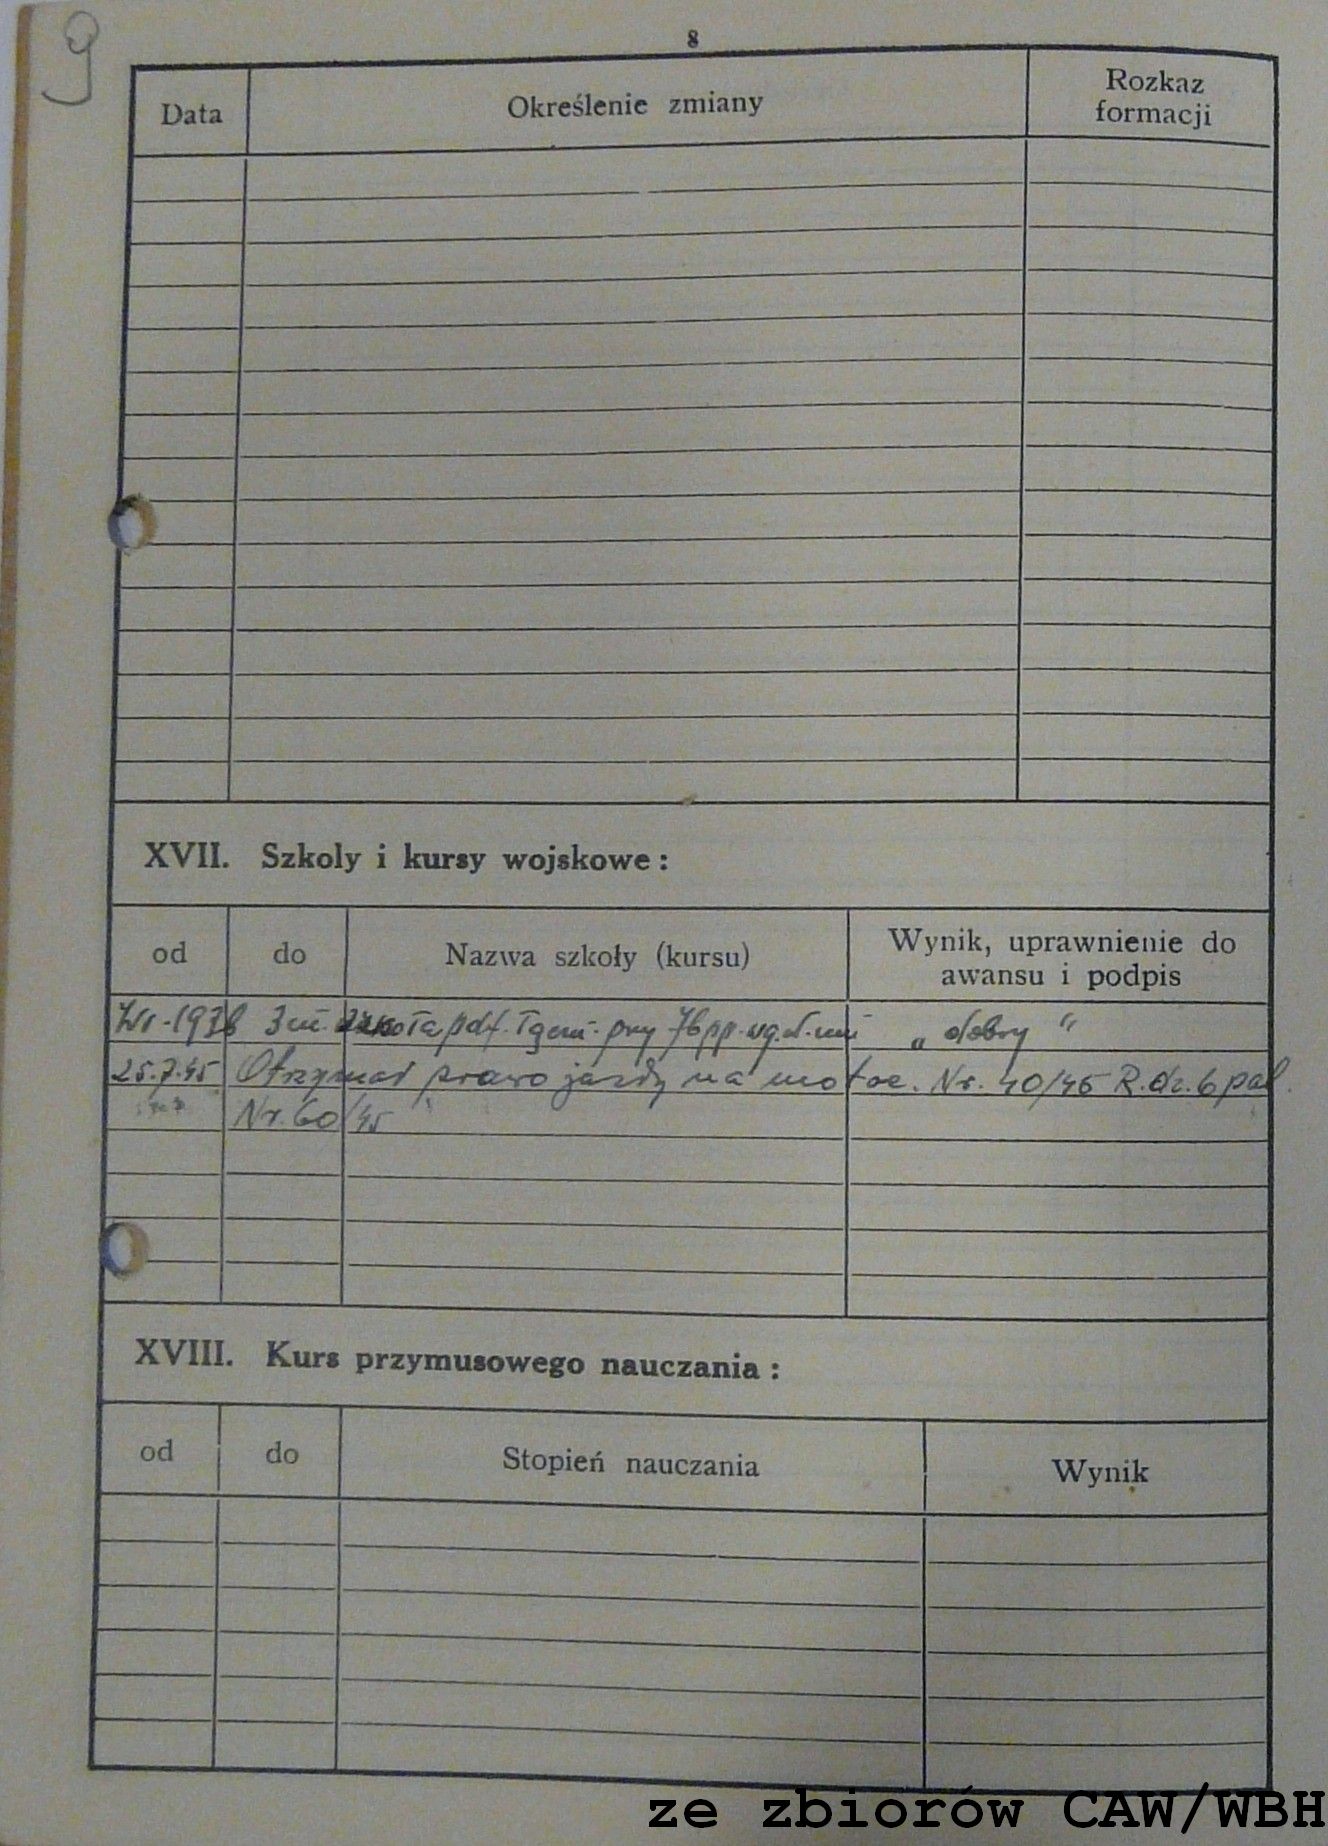 9
8
Data Określenie zmiany Rozkaz formacji
XVII. Szkoły i kursy wojskowe :
od do Nazwa szkoły (kursu) Wynik, uprawnienie do awansu i podpis
3 m. szkoła pdf. przy 76 pp. „ dobry "
25.7.45 Otrzymał prawo jazdy na motoc. Nr. 40/45 R.dz. 6 pal.
Nr. 60/45
XVIII. Kurs przymusowego nauczania :
od do Stopień nauczania Wynik
ze zbiorów CAW/WBH